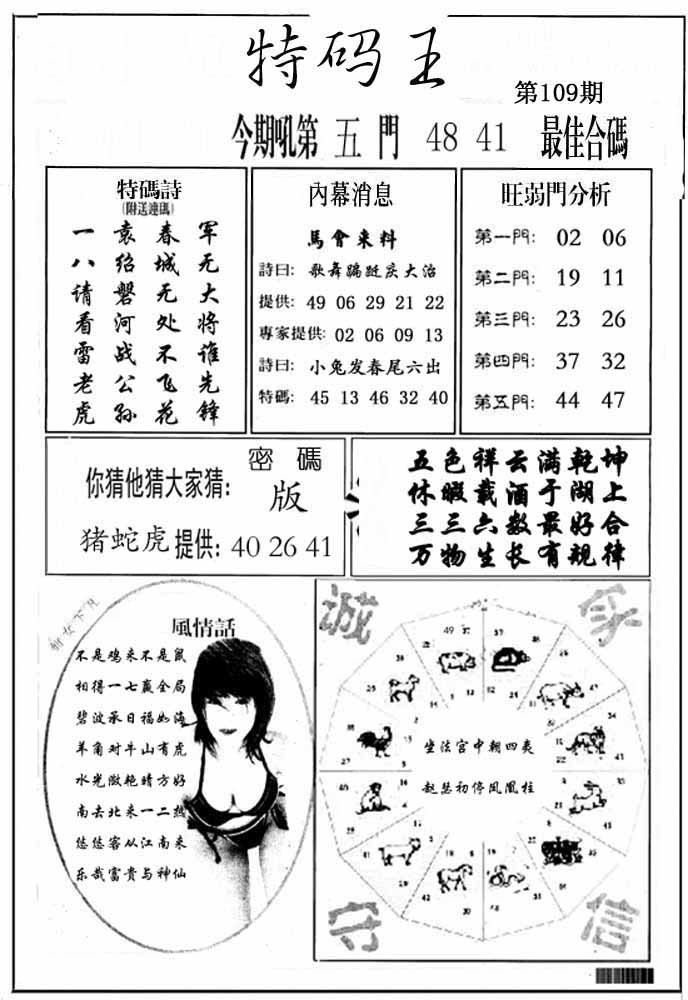 特码王
第109期
今期吼第 五 門 48 41 最佳合碼
特碼詩
(附送連碼)
一 袁 春 军
八 绍 城 无
请 磐 无 大
看 河 处 将
雷 战 不 谁
老 公 飞 先
虎 孙 花 锋
內幕消息
馬會来料
詩曰: 歌舞蹁跹庆大治
提供: 49 06 29 21 22
專家提供: 02 06 09 13
詩曰: 小兔发春尾六出
特碼: 45 13 46 32 40
旺弱門分析
第一門: 02 06
第二門: 19 11
第三門: 23 26
第四門: 37 32
第五門: 44 47
你猜他猜大家猜:
密碼
版
猪蛇虎提供: 40 26 41
五色祥云满乾坤
休暇载酒于湖上
三三六数最好合
万物生长有规律
風情話
不是鸡来不是鼠
相得一七赢全局
碧波承日福如海
羊角对牛山有虎
水光潋艳晴方好
南去北来一二热
悠悠客从江南来
乐哉富贵与神仙
诚
家
坐法宫中朝四夷
赵瑟初停凤凰柱
守
信